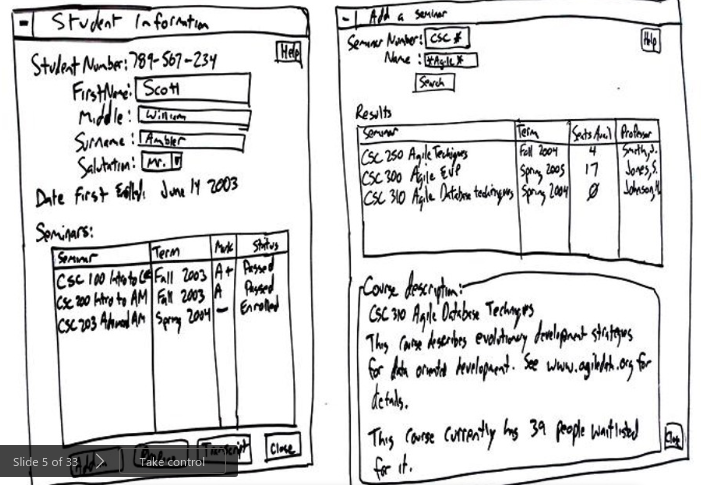 Student Information
Help
Student Number: 789-567-234
First Name: Scott
Middle: William
Surname: Ambler
Salutation: Mr.
Date First June 14 2003
Seminars:
Seminar Term Mark Status
CSC 100 Intro to Fall 2003 A+ Passed
CSC 200 Intro to AM Fall 2003 A Passed
CSC 203 AM Spring 2004 - Enrolled
Transcript Close
Slide 5 of 33 Take control
Add a seminar
Seminar Number: CSC * Help
Name: *Agile*
Search
Results
Seminar Term Seats Avail Professor
CSC 250 Agile Techniques Fall 2004 4 Smith, J.
CSC 300 Agile Spring 2005 17 Jones, S.
CSC 310 Agile Database techniques Spring 2004 Ø Johnson,
Course description:
CSC 310 Agile Database Techniques
This course describes evolutionary development strategies
for data oriented development. See www.agiledata.org for
details.
This course currently has 39 people waitlisted
for it.
Close